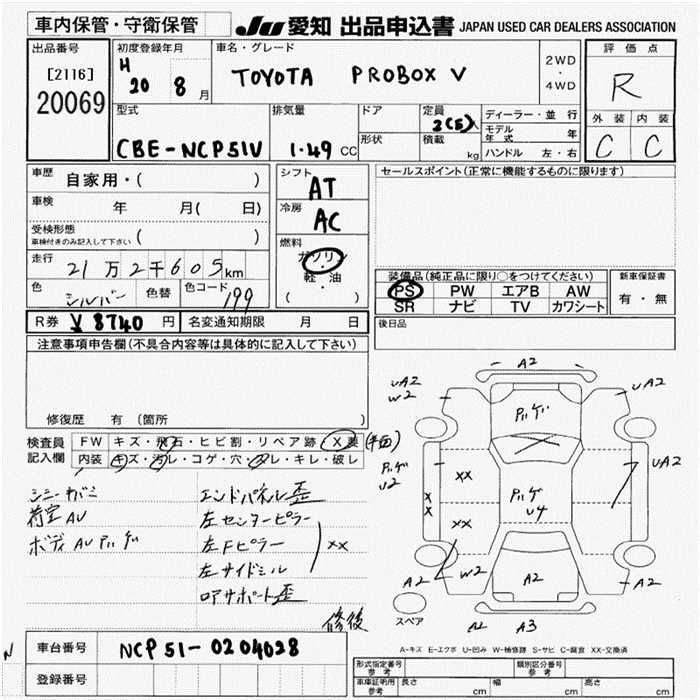 車内保管・守衛保管
JU 愛知 出品申込書 JAPAN USED CAR DEALERS ASSOCIATION
出品番号
[2116]
20069
初度登録年月
H 20 8 月
車名・グレード
TOYOTA PROBOX V
2WD
・
4WD
評価点
R
外装 内装
C C
型式
CBE-NCP51V
排気量
1.49 CC
ドア
形状
定員
2(5)人
積載
kg
ディーラー・並行
モデル年式 年
ハンドル 左・右
車歴
自家用・( )
車検 年 月( 日)
受検形態
車検付きのみ記入して下さい ( )
走行
21万2千605km
色 シルバー 色替 色コード 199
シフト
AT
冷房
AC
燃料
ガソリン
・
軽油
( )
セールスポイント(正常に機能するものに限ります)
装備品(純正品に限り○をつけてください)
PS PW エアB AW
SR ナビ TV カワシート
新車保証書
有・無
R券 ¥8740 円 名変通知期限 月 日
後日品
注意事項申告欄(不具合内容等は具体的に記入して下さい)
修復歴 有 (箇所 )
検査員記入欄
FW キズ・飛石・ヒビ割・リペア跡・X要
内装 キズ・汚レ・コゲ・穴・スレ・キレ・破レ
荷室AU
エンドパネル歪
左センターピラー
左Fピラー
XX
左サイドシル
修後
A2
UA2
W2
UA2
U2
XX
UA2
XX
XX
U4
A2
W2
A2
A2
A2
A3
スペア
A-キズ E-エクボ U-凹み W-補修跡 S-サビ C-腐食 XX-交換済
車台番号 NCP51-0204028
登録番号
形式指定番号
参考
類別区分番号
参考
車庫証明用
参考
長さ cm 幅 cm 高さ cm